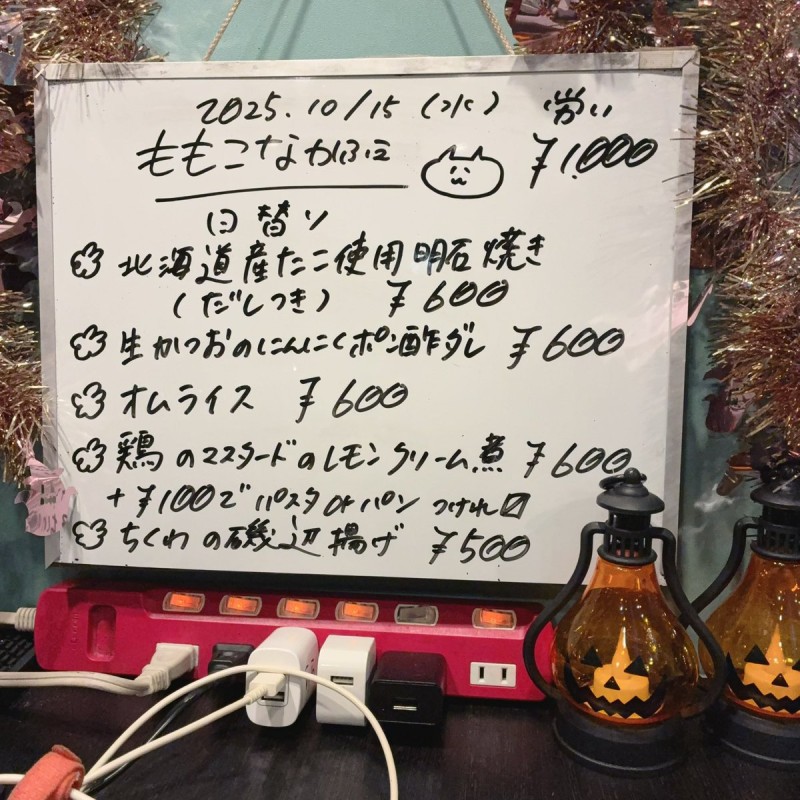 2025.10/15 (水) 労い
ももこなかふぇ ¥1,000
日替り
北海道産たこ使用明石焼き
(だしつき) ¥600
生かつおのにんにくポン酢ダレ ¥600
オムライス ¥600
鶏のマスタードのレモンクリーム煮 ¥600
+¥100でパスタorパンつけれ〼
ちくわの磯辺揚げ ¥500